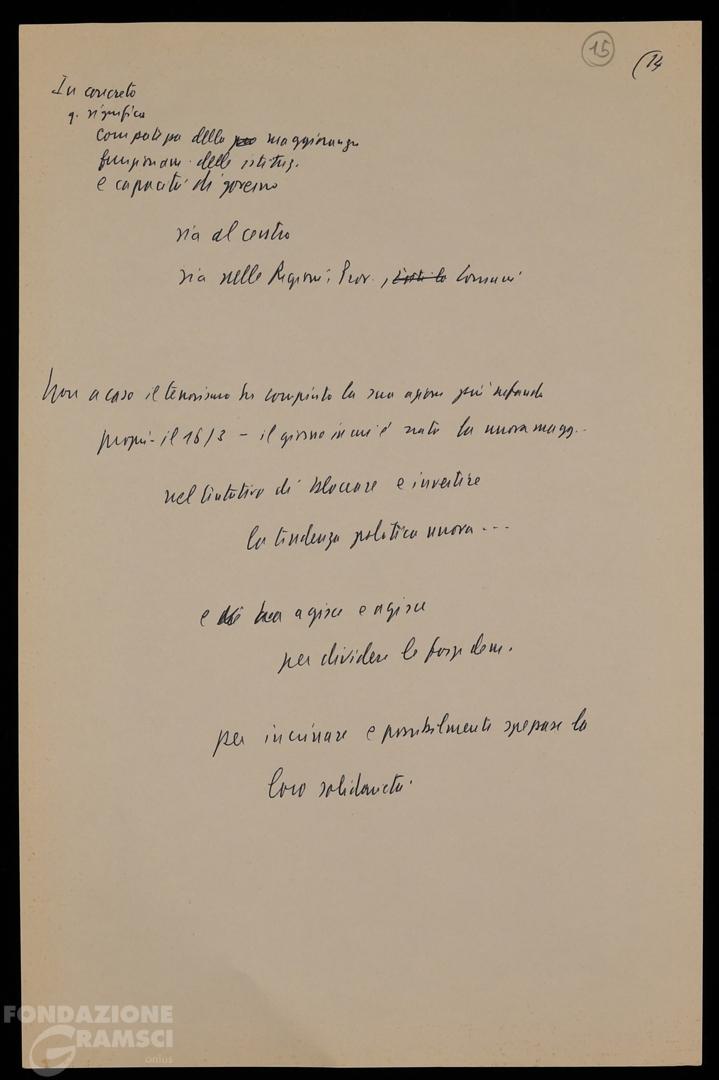 15
(14
In concreto
q. significa
compatezza della maggioranza
funzionam. delle istituz.
e capacità di governo
sia al centro
sia nelle Regioni, Prov., Comuni
Non a caso il terrorismo ha compiuto la sua azione più nefanda
proprio il 16/3 – il giorno in cui è nata la nuova magg...
nel tentativo di bloccare e invertire
la tendenza politica nuova ...
e agisce e agisce
per dividere le forze dem.
per incrinare e possibilmente spezzare la
loro solidarietà.
FONDAZIONE
GRAMSCI
onlus